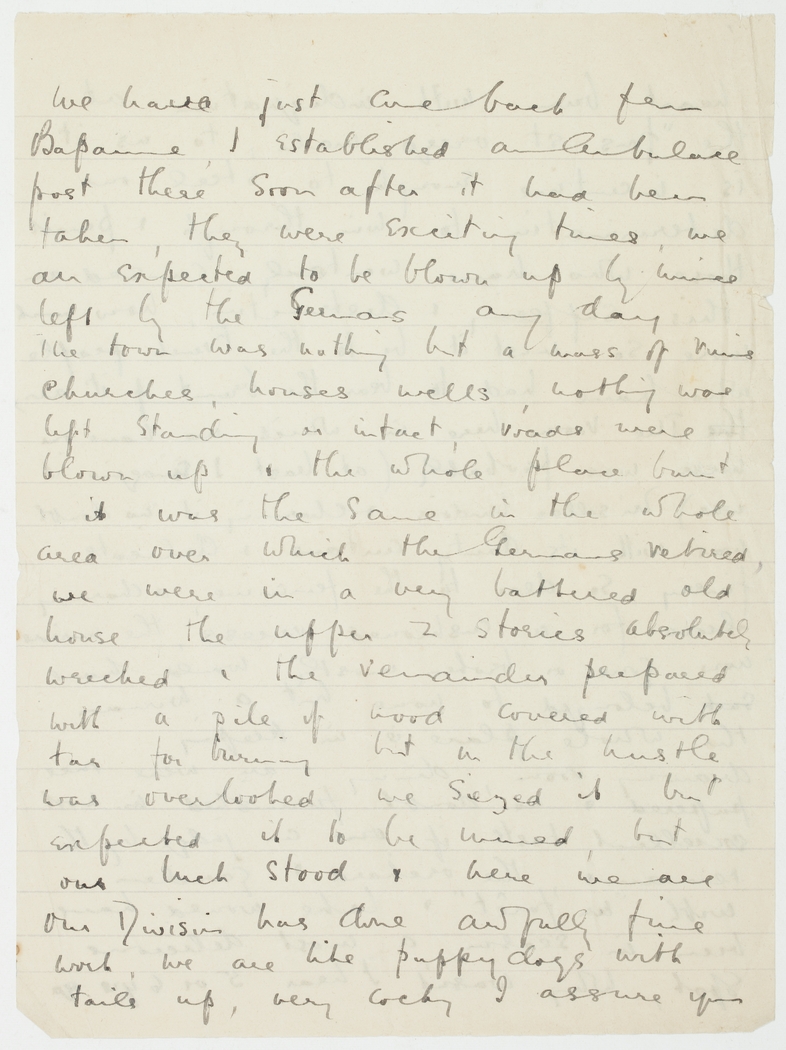 We have just come back from
Bapaume, I established an Ambulance
post there soon after it had been
taken, they were exciting times, we
all expected to be blown up by mines
left by the Germans any day
The town was nothing but a mass of ruins
churches, houses wells, nothing was
left standing or intact, roads were
blown up & the whole place burnt
it was the same in the whole
area over which the Germans retired,
we were in a very battered old
house the upper 2 stories absolutely
wrecked & the remainder prepared
with a pile of wood covered with
tar for burning but in the hustle
was overlooked, we siezed it but
expected it to be mined, but
our luck stood & here we are
Our Division has done awfully fine
work, we are like puppy dogs with
tails up, very cocky I assure you